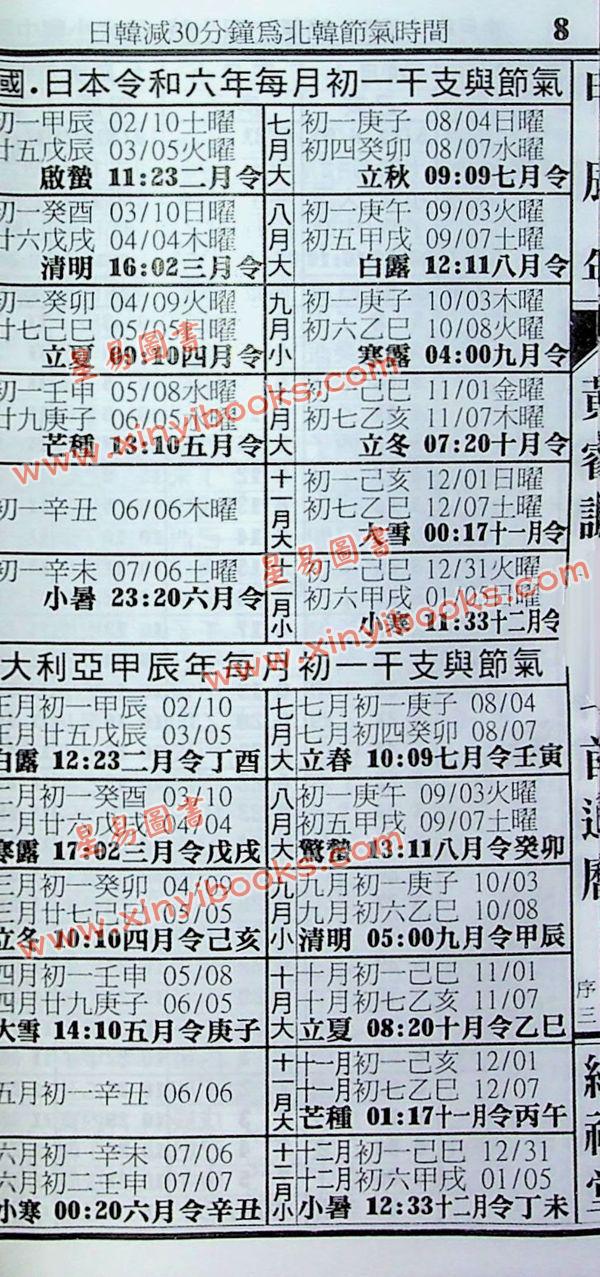 日韓減30分鐘爲北韓節氣時間
8
國.日本令和六年每月初一干支與節氣
初一甲辰 02/10土曜
廿五戊辰 03/05火曜
啟蟄 11:23二月令
初一癸酉 03/10日曜
廿六戊戌 04/04木曜
清明 16:02三月令
初一癸卯 04/09火曜
廿七己巳 05/05日曜
立夏 09:10四月令
初一壬申 05/08水曜
廿九庚子 06/05水曜
芒種 13:10五月令
初一辛丑 06/06木曜
初一辛未 07/06土曜
小暑 23:20六月令
七月大
初一庚子 08/04日曜
初四癸卯 08/07水曜
立秋 09:09七月令
八月大
初一庚午 09/03火曜
初五甲戌 09/07土曜
白露 12:11八月令
九月小
初一庚子 10/03木曜
初六乙巳 10/08火曜
寒露 04:00九月令
十月大
初一己巳 11/01金曜
初七乙亥 11/07木曜
立冬 07:20十月令
十一月大
初一己亥 12/01日曜
初七乙巳 12/07土曜
大雪 00:17十一月令
十二月小
初一己巳 12/31火曜
初六甲戌 01/05日曜
小寒 11:33十二月令
大利亞甲辰年每月初一干支與節氣
正月初一甲辰 02/10
正月廿五戊辰 03/05
白露 12:23二月令丁酉
二月初一癸酉 03/10
二月廿六戊戌 04/04
寒露 17:02三月令戊戌
三月初一癸卯 04/09
三月廿七己巳 05/05
立冬 10:10四月令己亥
四月初一壬申 05/08
四月廿九庚子 06/05
大雪 14:10五月令庚子
五月初一辛丑 06/06
六月初一辛未 07/06
六月初二壬申 07/07
小寒 00:20六月令辛丑
七月大
七月初一庚子 08/04
七月初四癸卯 08/07
立春 10:09七月令壬寅
八月大
初一庚午 09/03火曜
初五甲戌 09/07土曜
驚蟄 13:11八月令癸卯
九月小
九月初一庚子 10/03
九月初六乙巳 10/08
清明 05:00九月令甲辰
十月大
十月初一己巳 11/01
十月初七乙亥 11/07
立夏 08:20十月令乙巳
十一月大
十一月初一己亥 12/01
十一月初七乙巳 12/07
芒種 01:17十一月令丙午
十二月小
十二月初一己巳 12/31
十二月初六甲戌 01/05
小暑 12:33十二月令丁未
序三
星易圖書
www.xinyibooks.com
星易圖書
www.xinyibooks.com
星易圖書
www.xinyibooks.com